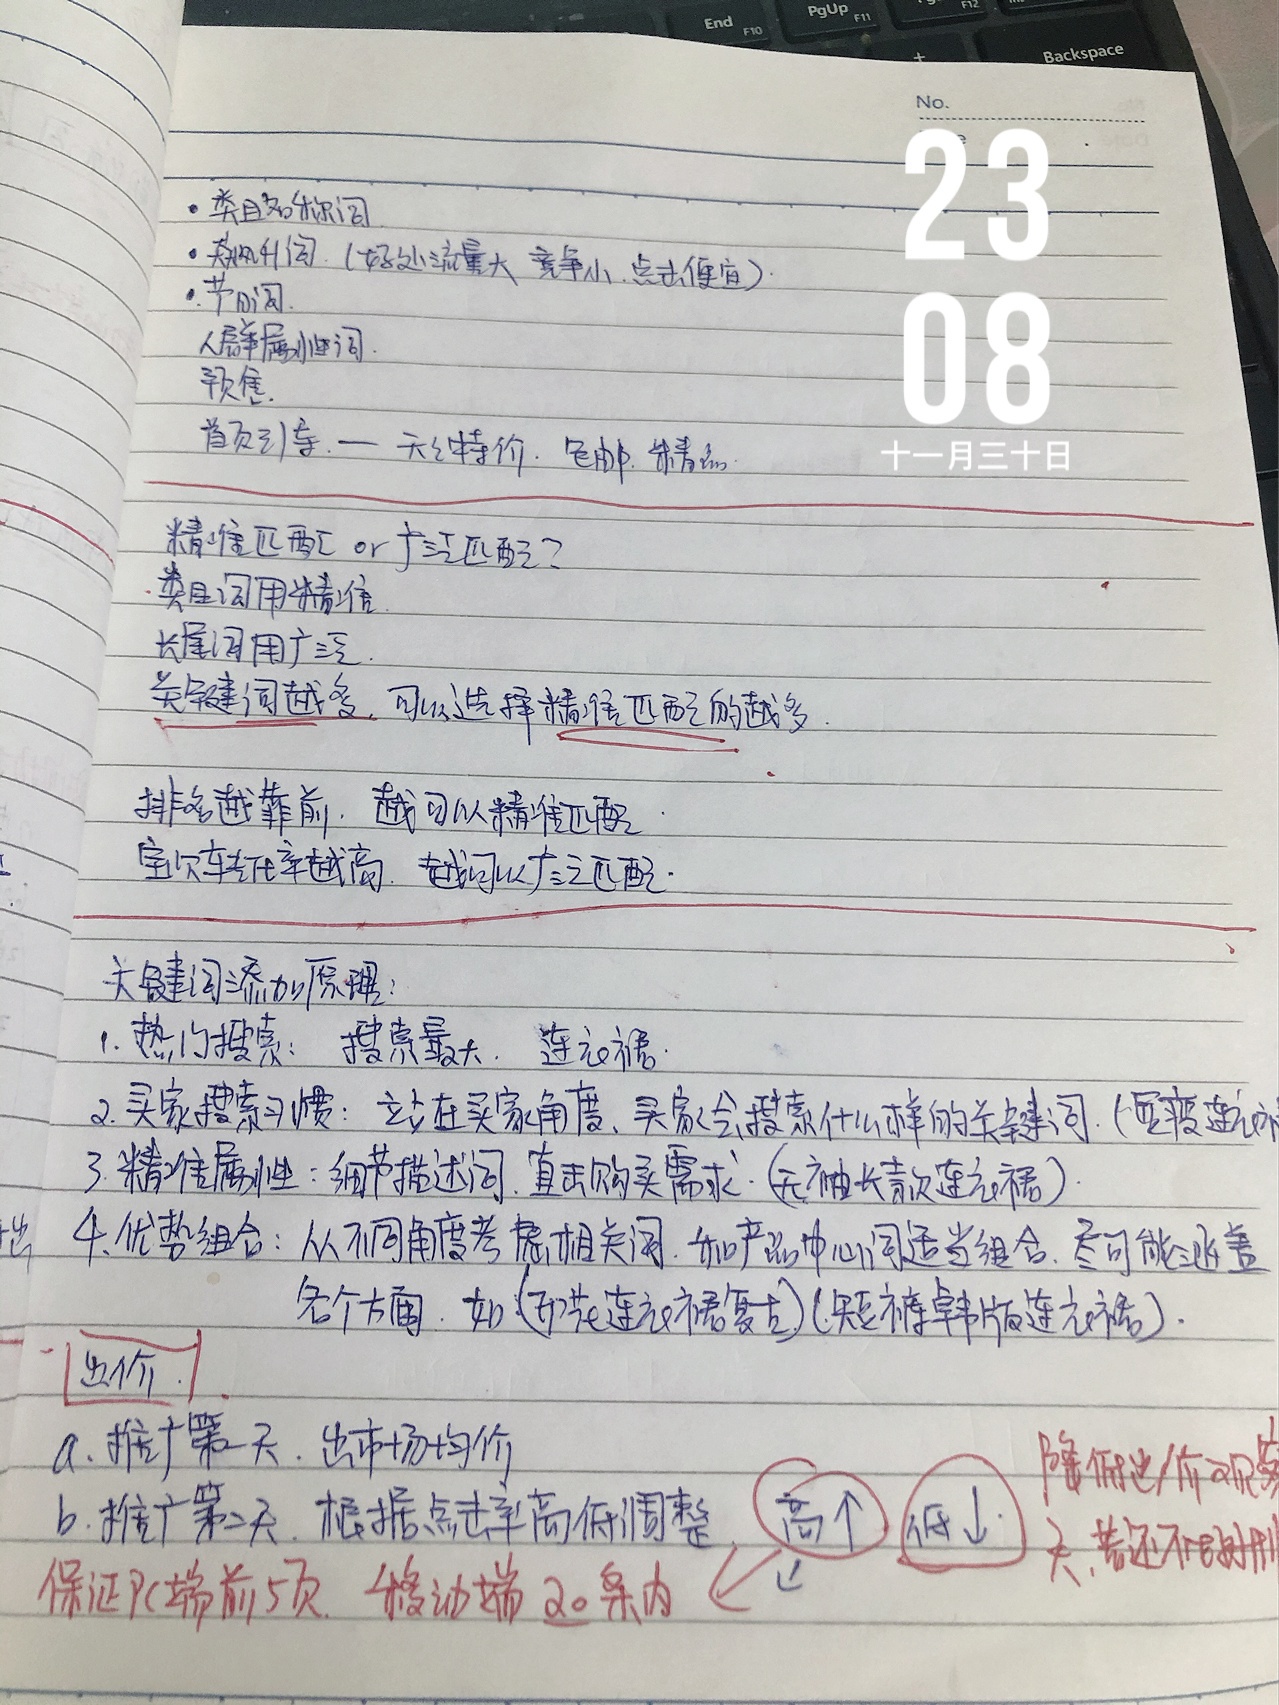 End
F10
PgUp
F11
F12
Backspace
No.
23
08
十一月三十日
• 类目名称词
• 飙升词.(好处:流量大 竞争小.点击便宜).
• 节日词.
人群属性词.
预售.
首页引导.— 天天特价. 包邮. 精品.
精准匹配 or 广泛匹配?
类目词用精准.
长尾词用广泛.
关键词越多,可以选择精准匹配的越多.
排名越靠前. 越可以精准匹配.
宝贝转化率越高. 越可以广泛匹配.
关键词添加原理:
1. 热门搜索: 搜索量大. 连衣裙.
2. 买家搜索习惯: 站在买家角度、买家会搜索什么样的关键词.(显瘦连衣裙
3. 精准属性:细节描述词.直击购买需求.(无袖长款连衣裙).
4. 优势组合:从不同角度考虑相关词.和产品中心词适当组合.尽可能涵盖
各个方面. 如(印花连衣裙复古)(短裤韩版连衣裙).
出价.
a. 推广第一天. 出市场均价
b. 推广第二天. 根据点击率高低调整. 高↑ 低↓.
降低出价观察
天、若还不好删
保证PC端前5页. 移动端20条内